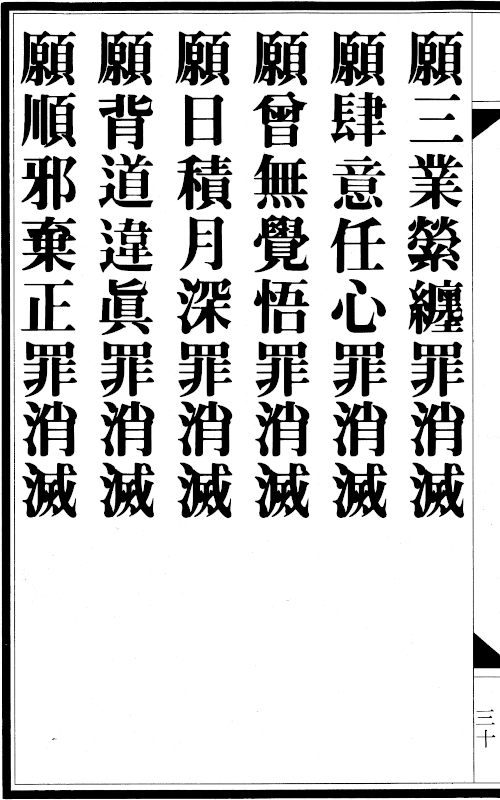 願三業縈纏罪消滅
願肆意任心罪消滅
願曾無覺悟罪消滅
願日積月深罪消滅
願背道違眞罪消滅
願順邪棄正罪消滅
三十